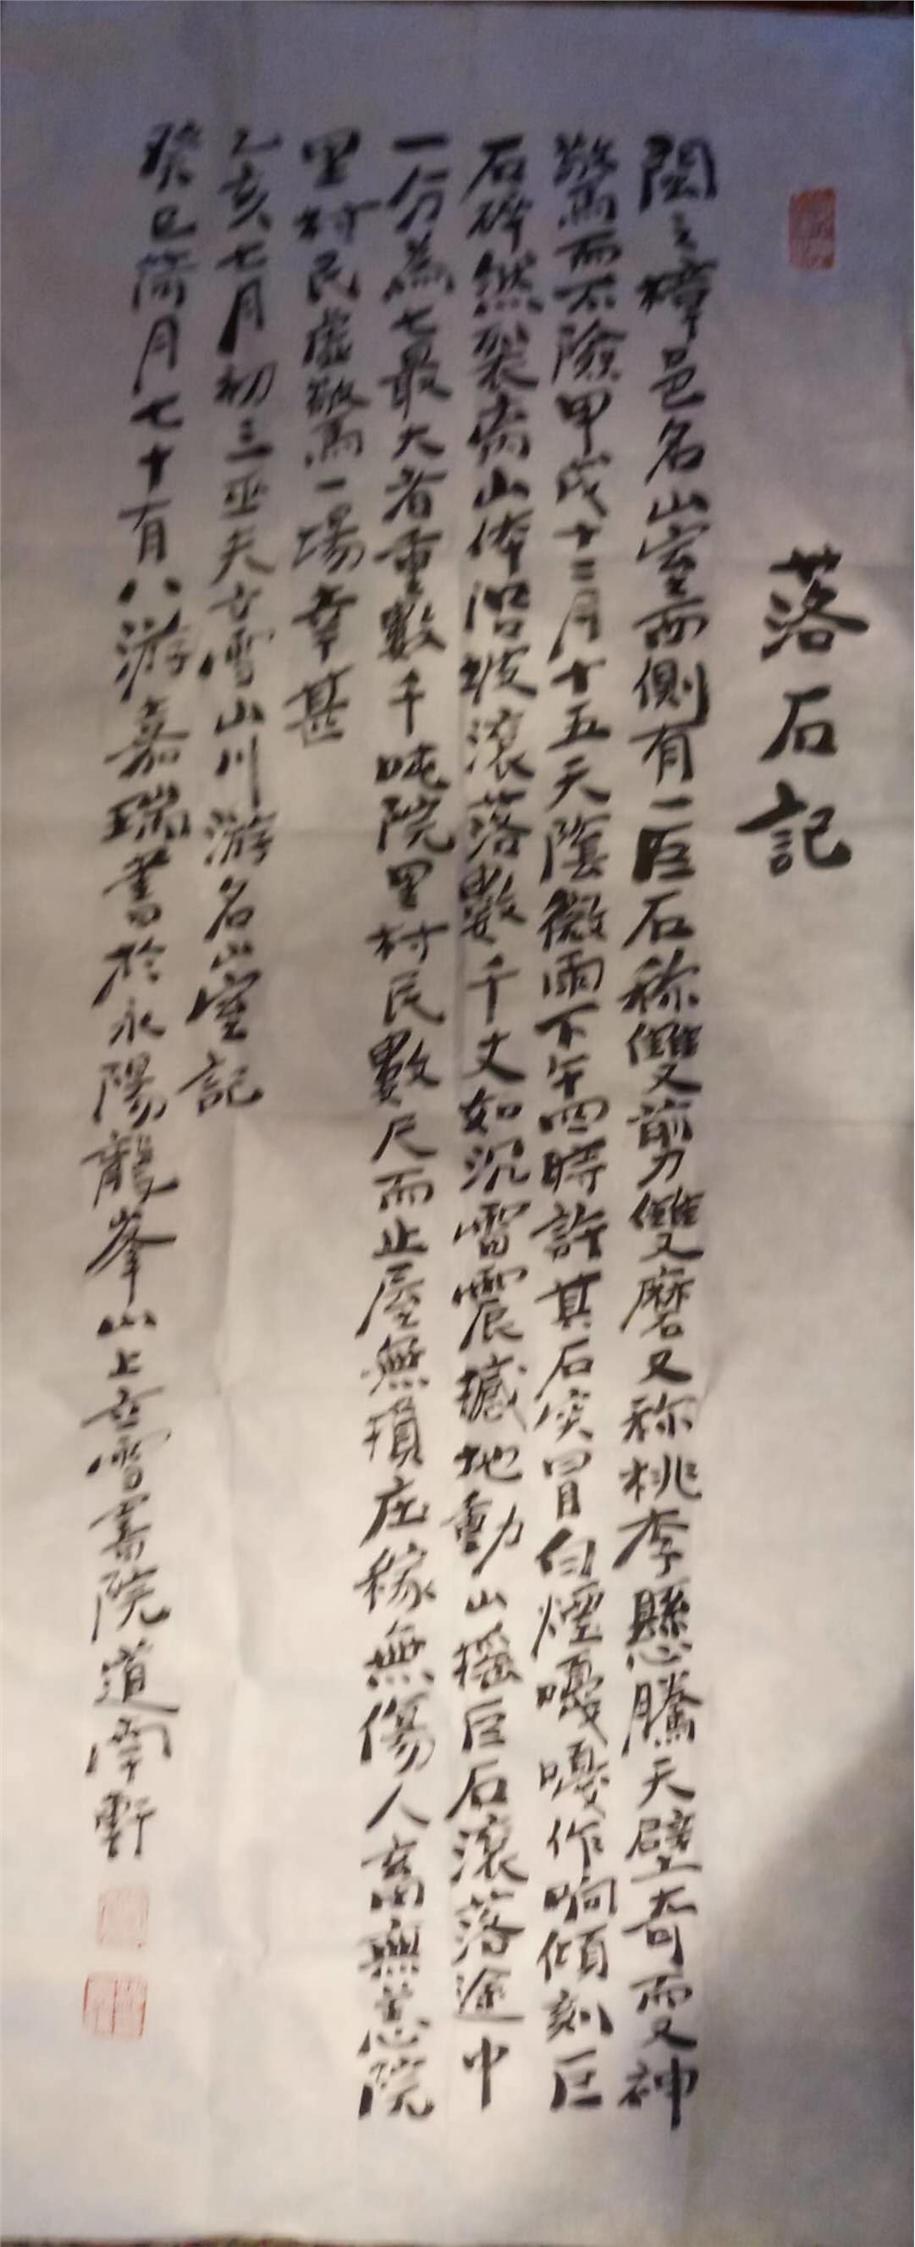 落石記
閩之樟邑名山室西側有一巨石称雙剪刀雙磨又称桃李懸騰天壁奇而又神
驚而不險甲戌十二月十五天陰微雨下午四時許其石突冒白煙嘎嘎作响傾刻巨
石砰然裂崩山体沿坡滾落數千丈如沉雷震撼地動山摇巨石滾落途中
一分為七最大者重數千吨院里村民數尺而止屋無損庄稼無傷人畜無恙院
里村民虚驚一場幸甚
乙亥七月初三巫夫立雪山川游名山室記
癸巳荷月七十有八游嘉瑞書於永陽龍峯山上立雪書院道南軒